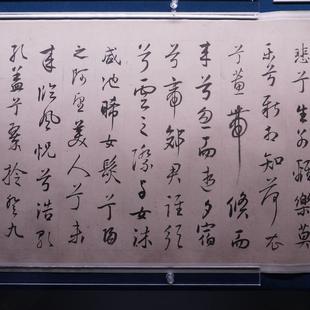 悲兮生別離樂莫
樂兮新相知荷衣
兮蕙帶倏而
來兮忽而逝夕宿
兮帝郊君誰須
兮雲之際與女沐
咸池晞女髮兮陽
之阿望美人兮未
來臨風怳兮浩歌
孔蓋兮翠旍登九